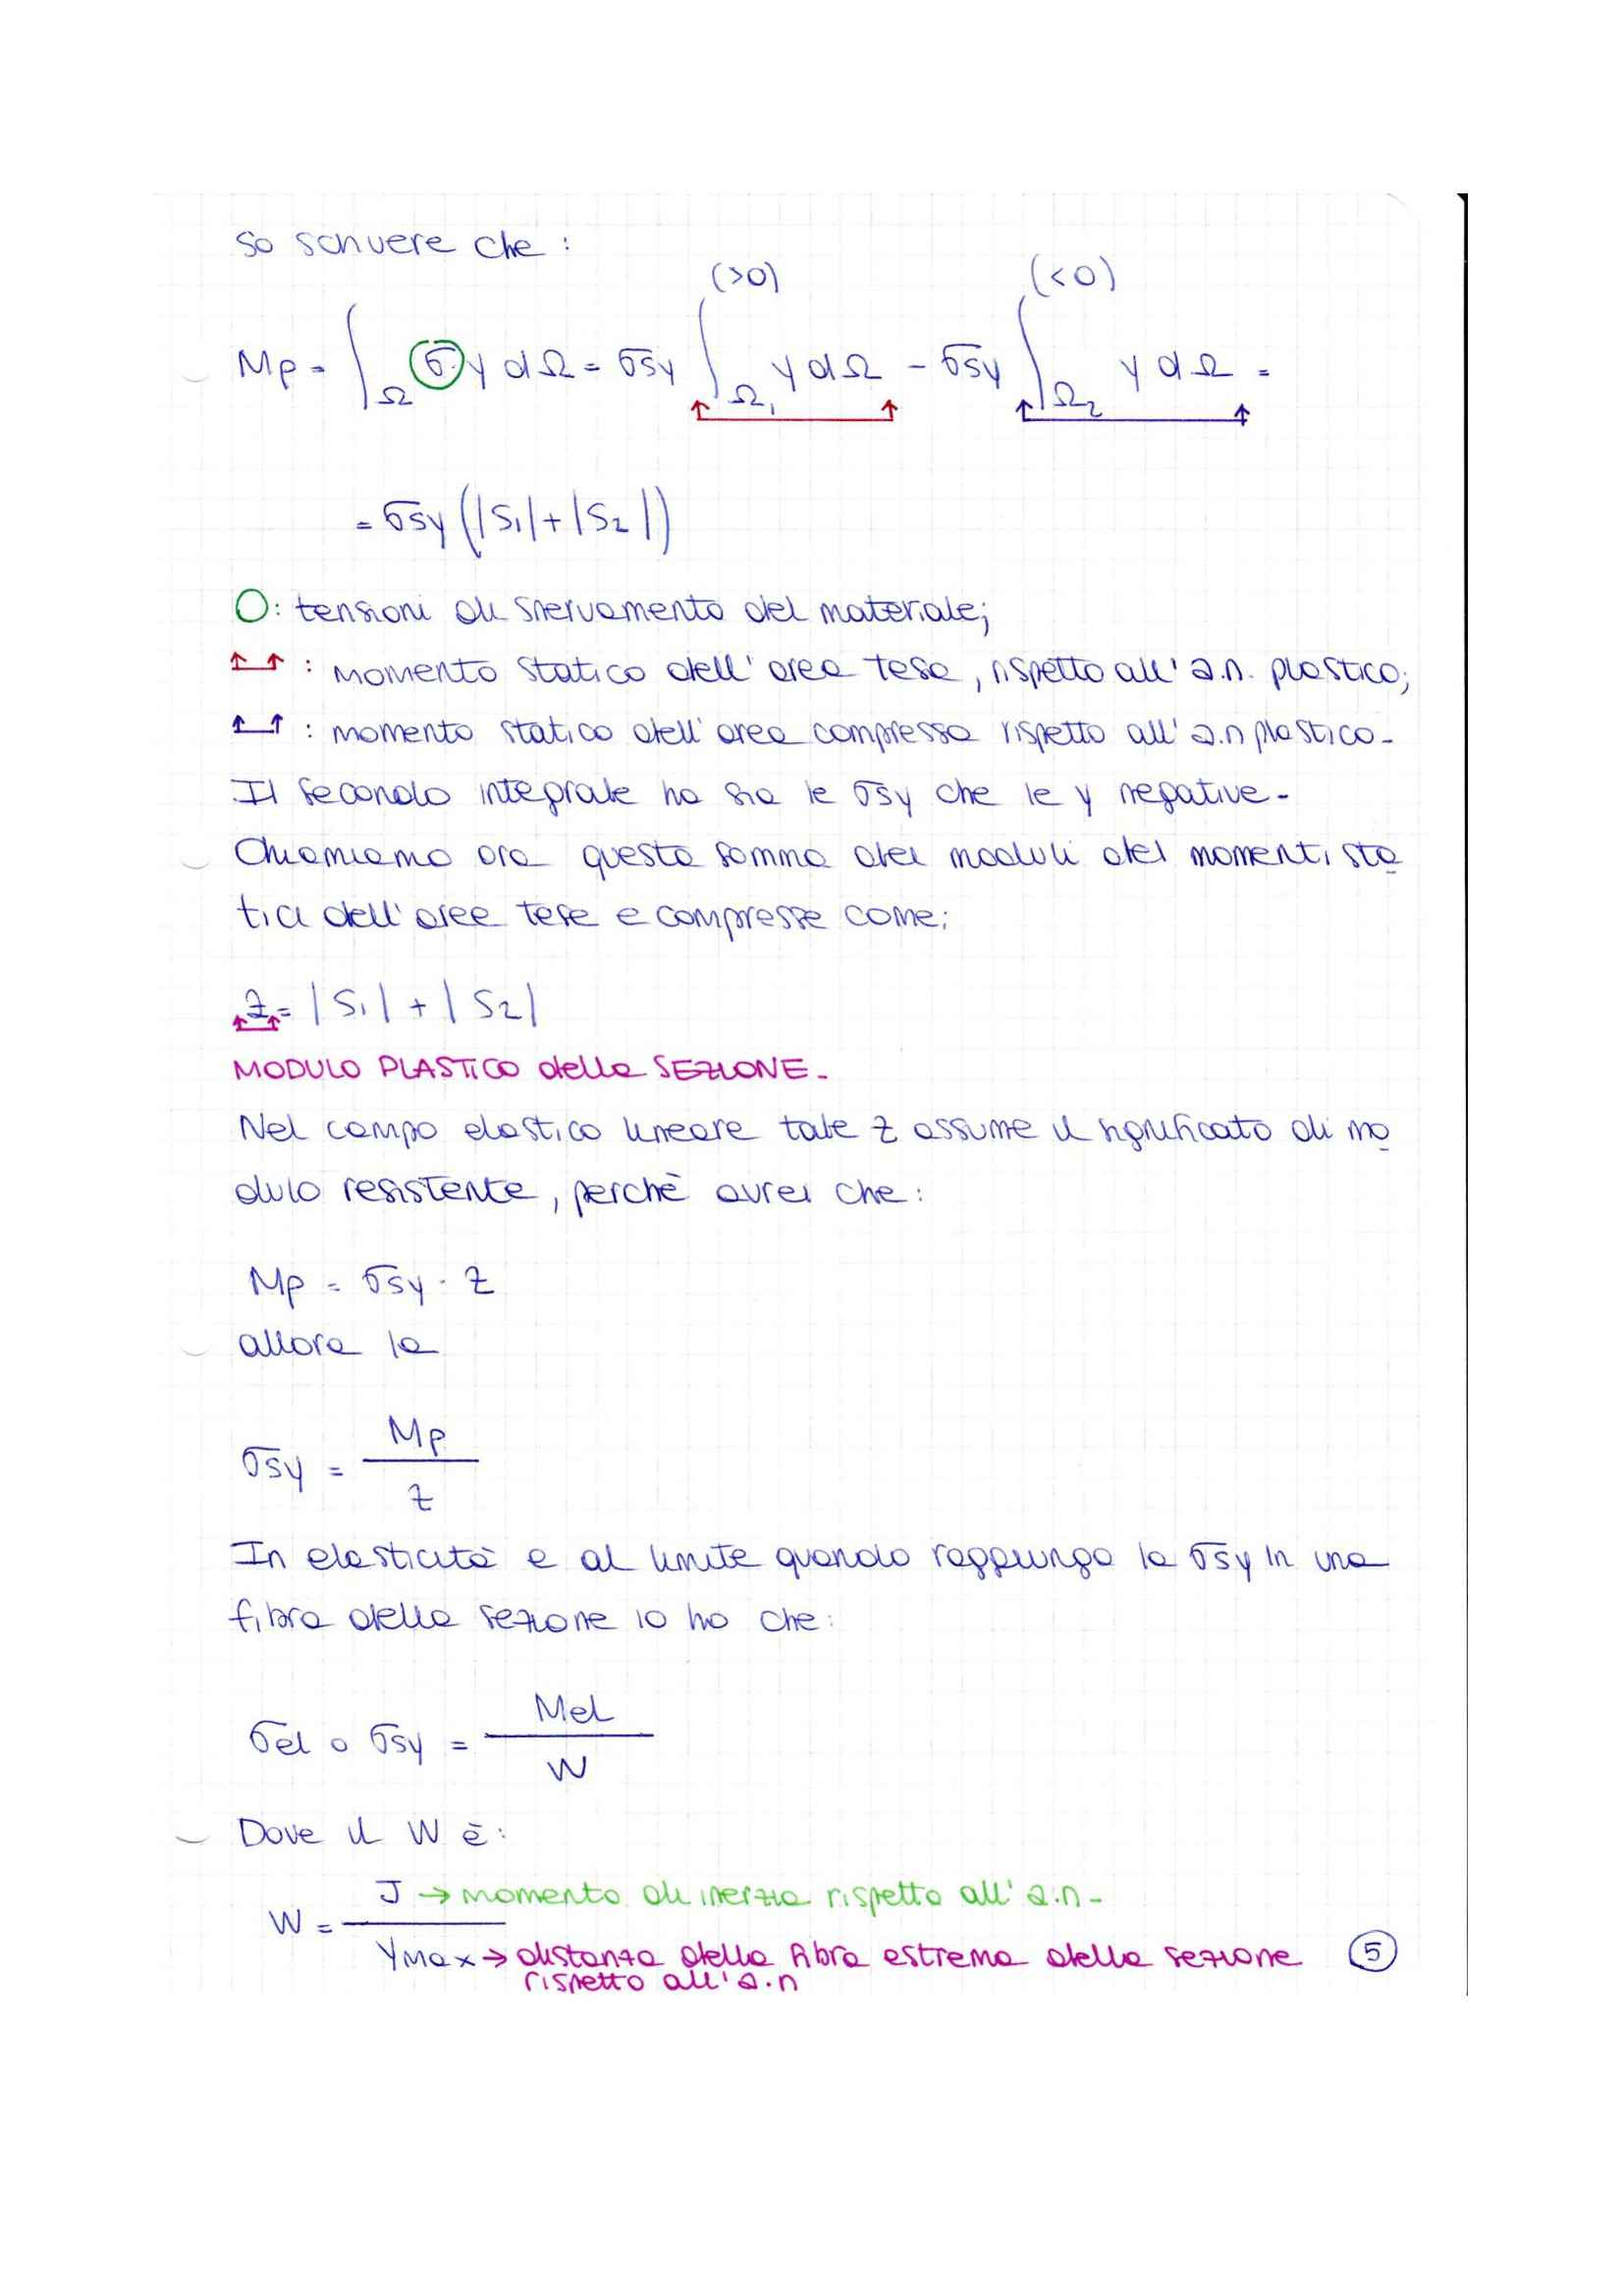 so scrivere che :
(>0) (<0)
Mp = ∫Ω σ y dΩ = σsy ∫Ω1 y dΩ - σsy ∫Ω2 y dΩ =
= σsy (|S1| + |S2|)
O: tensioni di snervamento del materiale;
: momento statico dell'area tesa, rispetto all'a.n. plastico;
: momento statico dell'area compressa rispetto all'a.n plastico.
Il secondo integrale ha sia le σsy che le y negative.
Chiamiamo ora questa somma dei moduli dei momenti sta
tici dell'aree tese e compresse come:
Z = |S1| + |S2|
MODULO PLASTICO della SEZIONE.
Nel campo elastico lineare tale Z assume il significato di mo
dulo resistente, perchè avrei che:
Mp = σsy · Z
allora la
σsy = Mp / Z
In elasticità e al limite quando raggiungo la σsy in una
fibra della sezione io ho che:
σel o σsy = Mel / W
Dove il W è:
J → momento di inerzia rispetto all'a.n.
W =
Ymax → distanza della fibra estrema della sezione
rispetto all'a.n
5